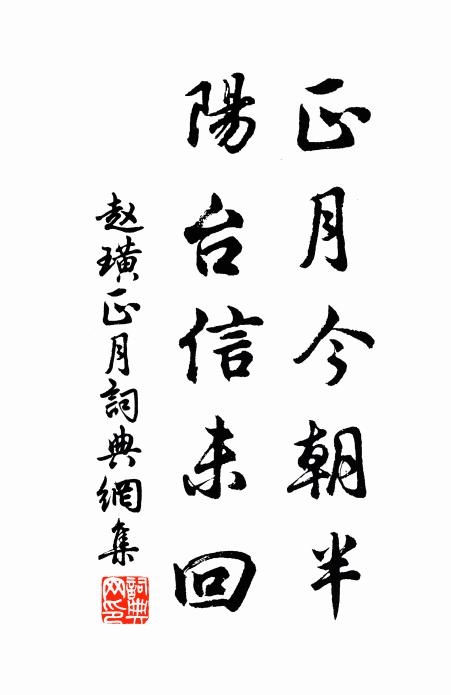 正月今朝半
陽台信未回
赵璜正月詞典網集
詞典网印